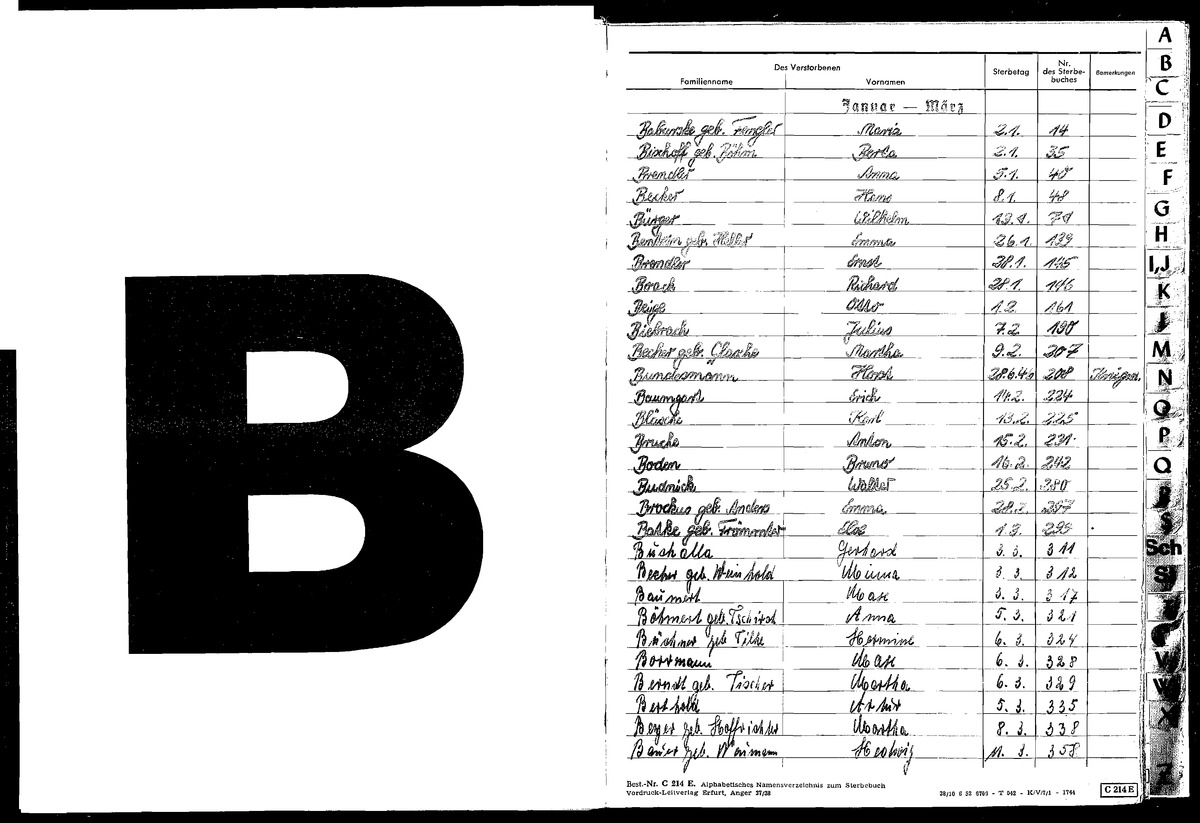 B
Des Verstorbenen
Familienname Vornamen Sterbetag Nr. des Sterbebuches Bemerkungen
Januar — März
geb. Maria 2.1. 14
Bischoff geb. Böhm Berta 2.1. 35
Brendler Anna 5.1. 40
Becker Hans 8.1. 48
Bürger Wilhelm 13.1. 71
geb. Emma 26.1. 139
Brendler Ernst 28.1. 145
Brack Richard 28.1. 146
Beige Otto 1.2. 161
Biebrach Julius 7.2. 190
Becher geb. Martha 9.2. 207
Bundesmann Horst 208
Baumgart Erich 14.2. 224
Bläsche Karl 13.2. 225
Bruche Anton 15.2. 231
Boden Bruno 16.2. 242
Budnick Walter 25.2. 280
Brockus geb. Anders Emma 28.2. 297
Batke geb. Else 1.3. 299
Bushalla Gerhard 3.3. 311
Becher geb. Weinhold Minna 3.3. 312
Baumert Max 3.3. 317
Böhmert geb. Tschirst Anna 5.3. 321
Büchner geb. Tilke Hermine 6.3. 324
Borrmann Max 6.3. 328
Berndt geb. Tischer Martha 6.3. 329
Berthold Artur 5.3. 335
Beyer geb. Hoffrichter Martha 8.3. 338
Bauer geb. Hedwig 11.3. 358
Best.-Nr. C 214 E. Alphabetisches Namensverzeichnis zum Sterbebuch
Vordruck-Leitverlag Erfurt, Anger 37/38
C 214 E
A
B
C
D
E
F
G
H
I,J
K
M
N
O
P
Q
R
S
Sch
V
W
X
Z